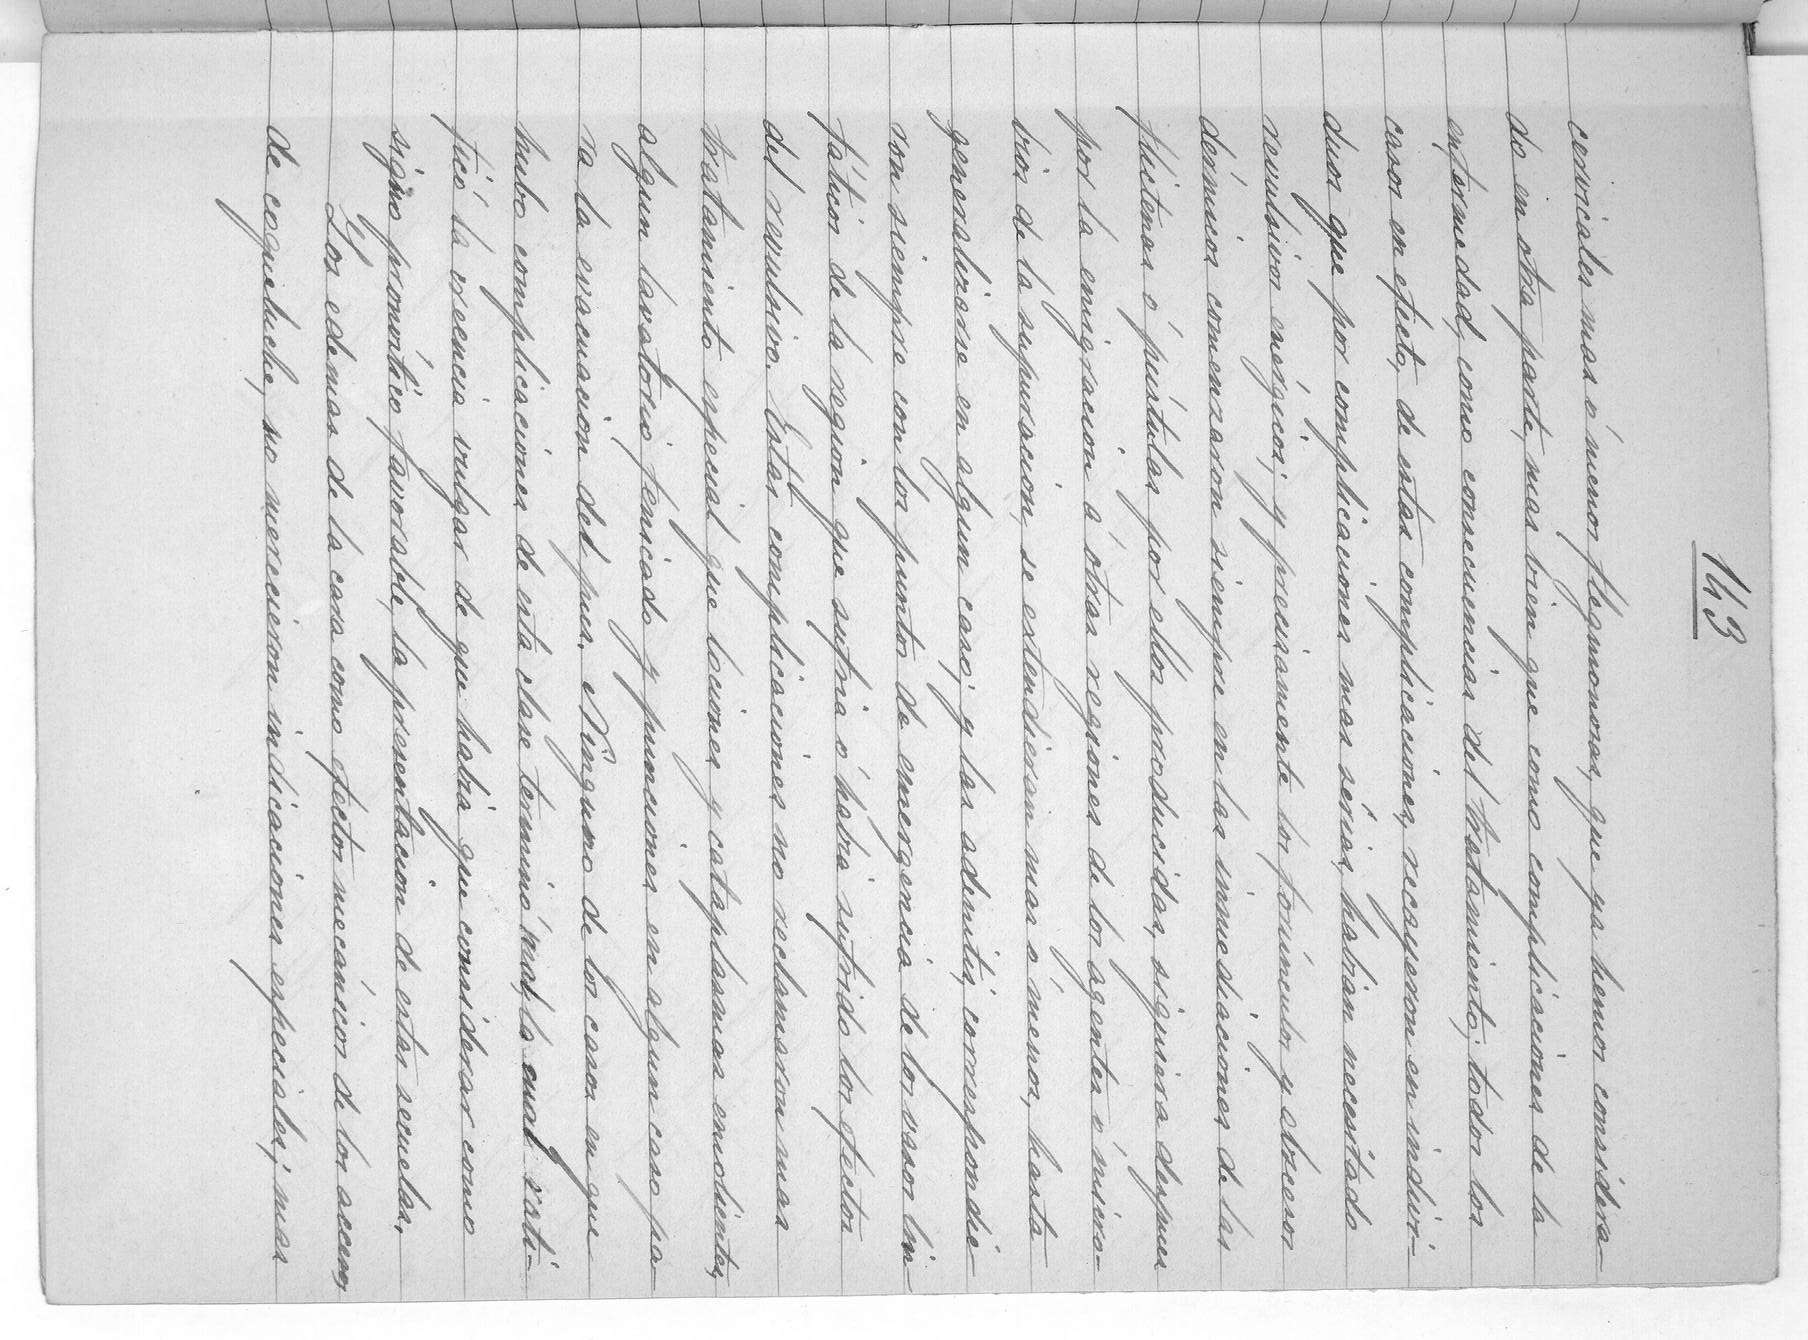 143
cervicales mas ó menos flegmonosas, que ya hemos considera-
do en otra parte, mas bien que como complicaciones de la
enfermedad, como consecuencias del tratamiento; todos los
casos en efecto, de estas complicaciones, recayeron en indivi-
duos que por complicaciones mas sérias, habian necesitado
revulsivos enérgicos; y precisamente los forúnculos y abscesos
dérmicos comenzaron siempre en las inmediaciones de las
flictenas ó pústulas por ellos producidas, siquiera despues
por la emigracion á otras regiones de los agentes ó micro-
bios de la supuracion, se extendieran mas ó menos, hasta
generalizarse en algun caso; y las adenitis, correspondie-
ron siempre con los puntos de emergencia de los vasos lin-
fáticos de la region que sufria ó habia sufrido los efectos
del revulsivo. Estas complicaciones no reclamaron mas
tratamiento especial que lociones y cataplasmas emolientes,
algun lavatorio fenicado y punciones en algun caso pa-
ra la evacuacion del pus. Ninguno de los casos en que
hubo complicaciones de esta clase terminó mal, lo cual rati-
ficó la creencia vulgar de que habia que considerar como
signo pronóstico favorable, la presentacion de estas secuelas.
Los edemas de la cara como efectos mecánicos de los accesos
de coqueluche, no merecieron indicaciones especiales; mas